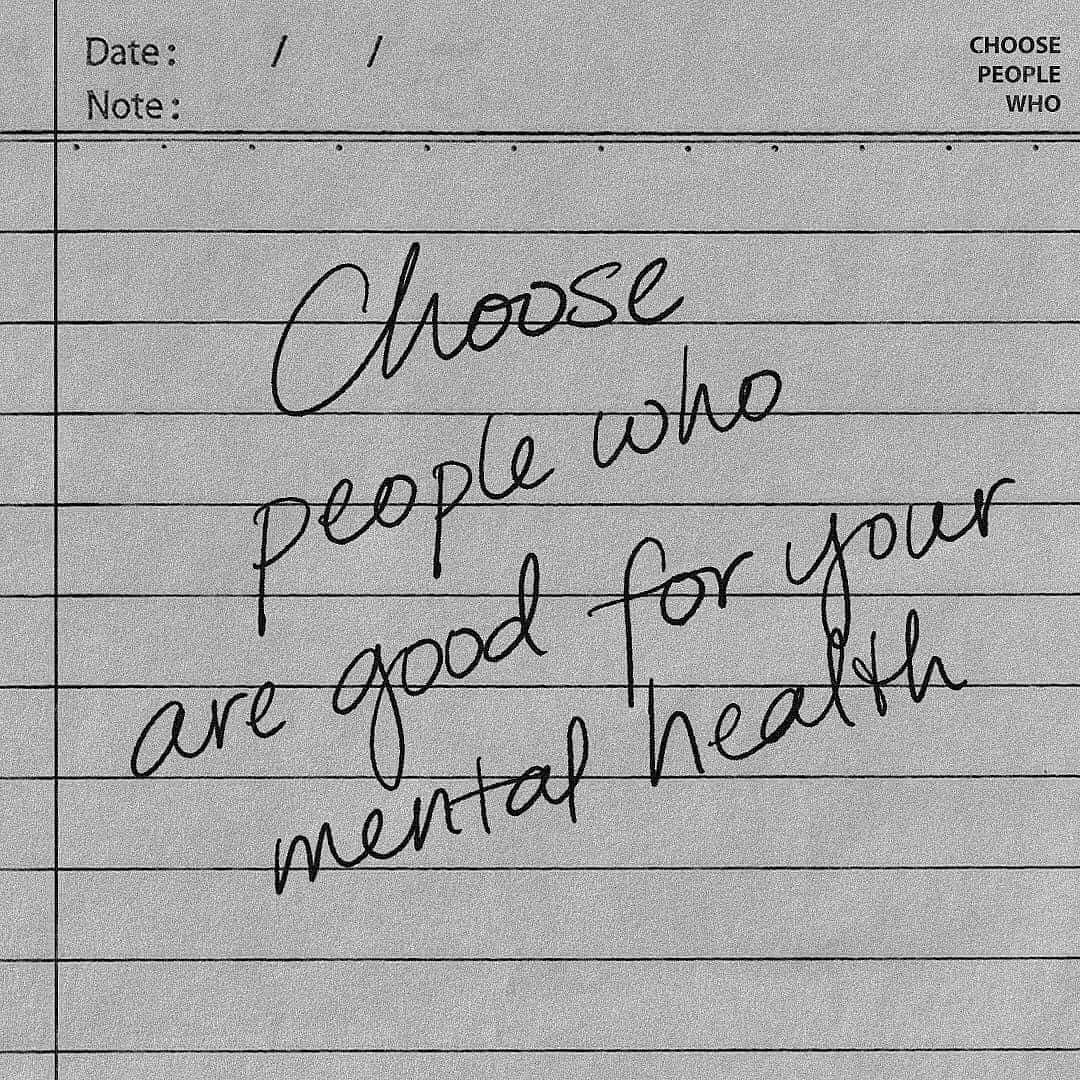 Date: / /
Note:
CHOOSE
PEOPLE
WHO
Choose
people who
are good for your
mental health